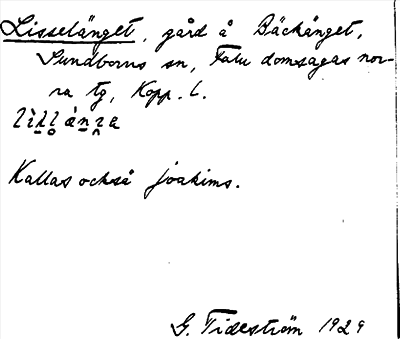 Lisselänget, gård å Bäckänget,
Sundborns sn, Falu domsagas nor-
ra tg, Kopp. l.
Kallas också Joakims.
G. Tideström 1929